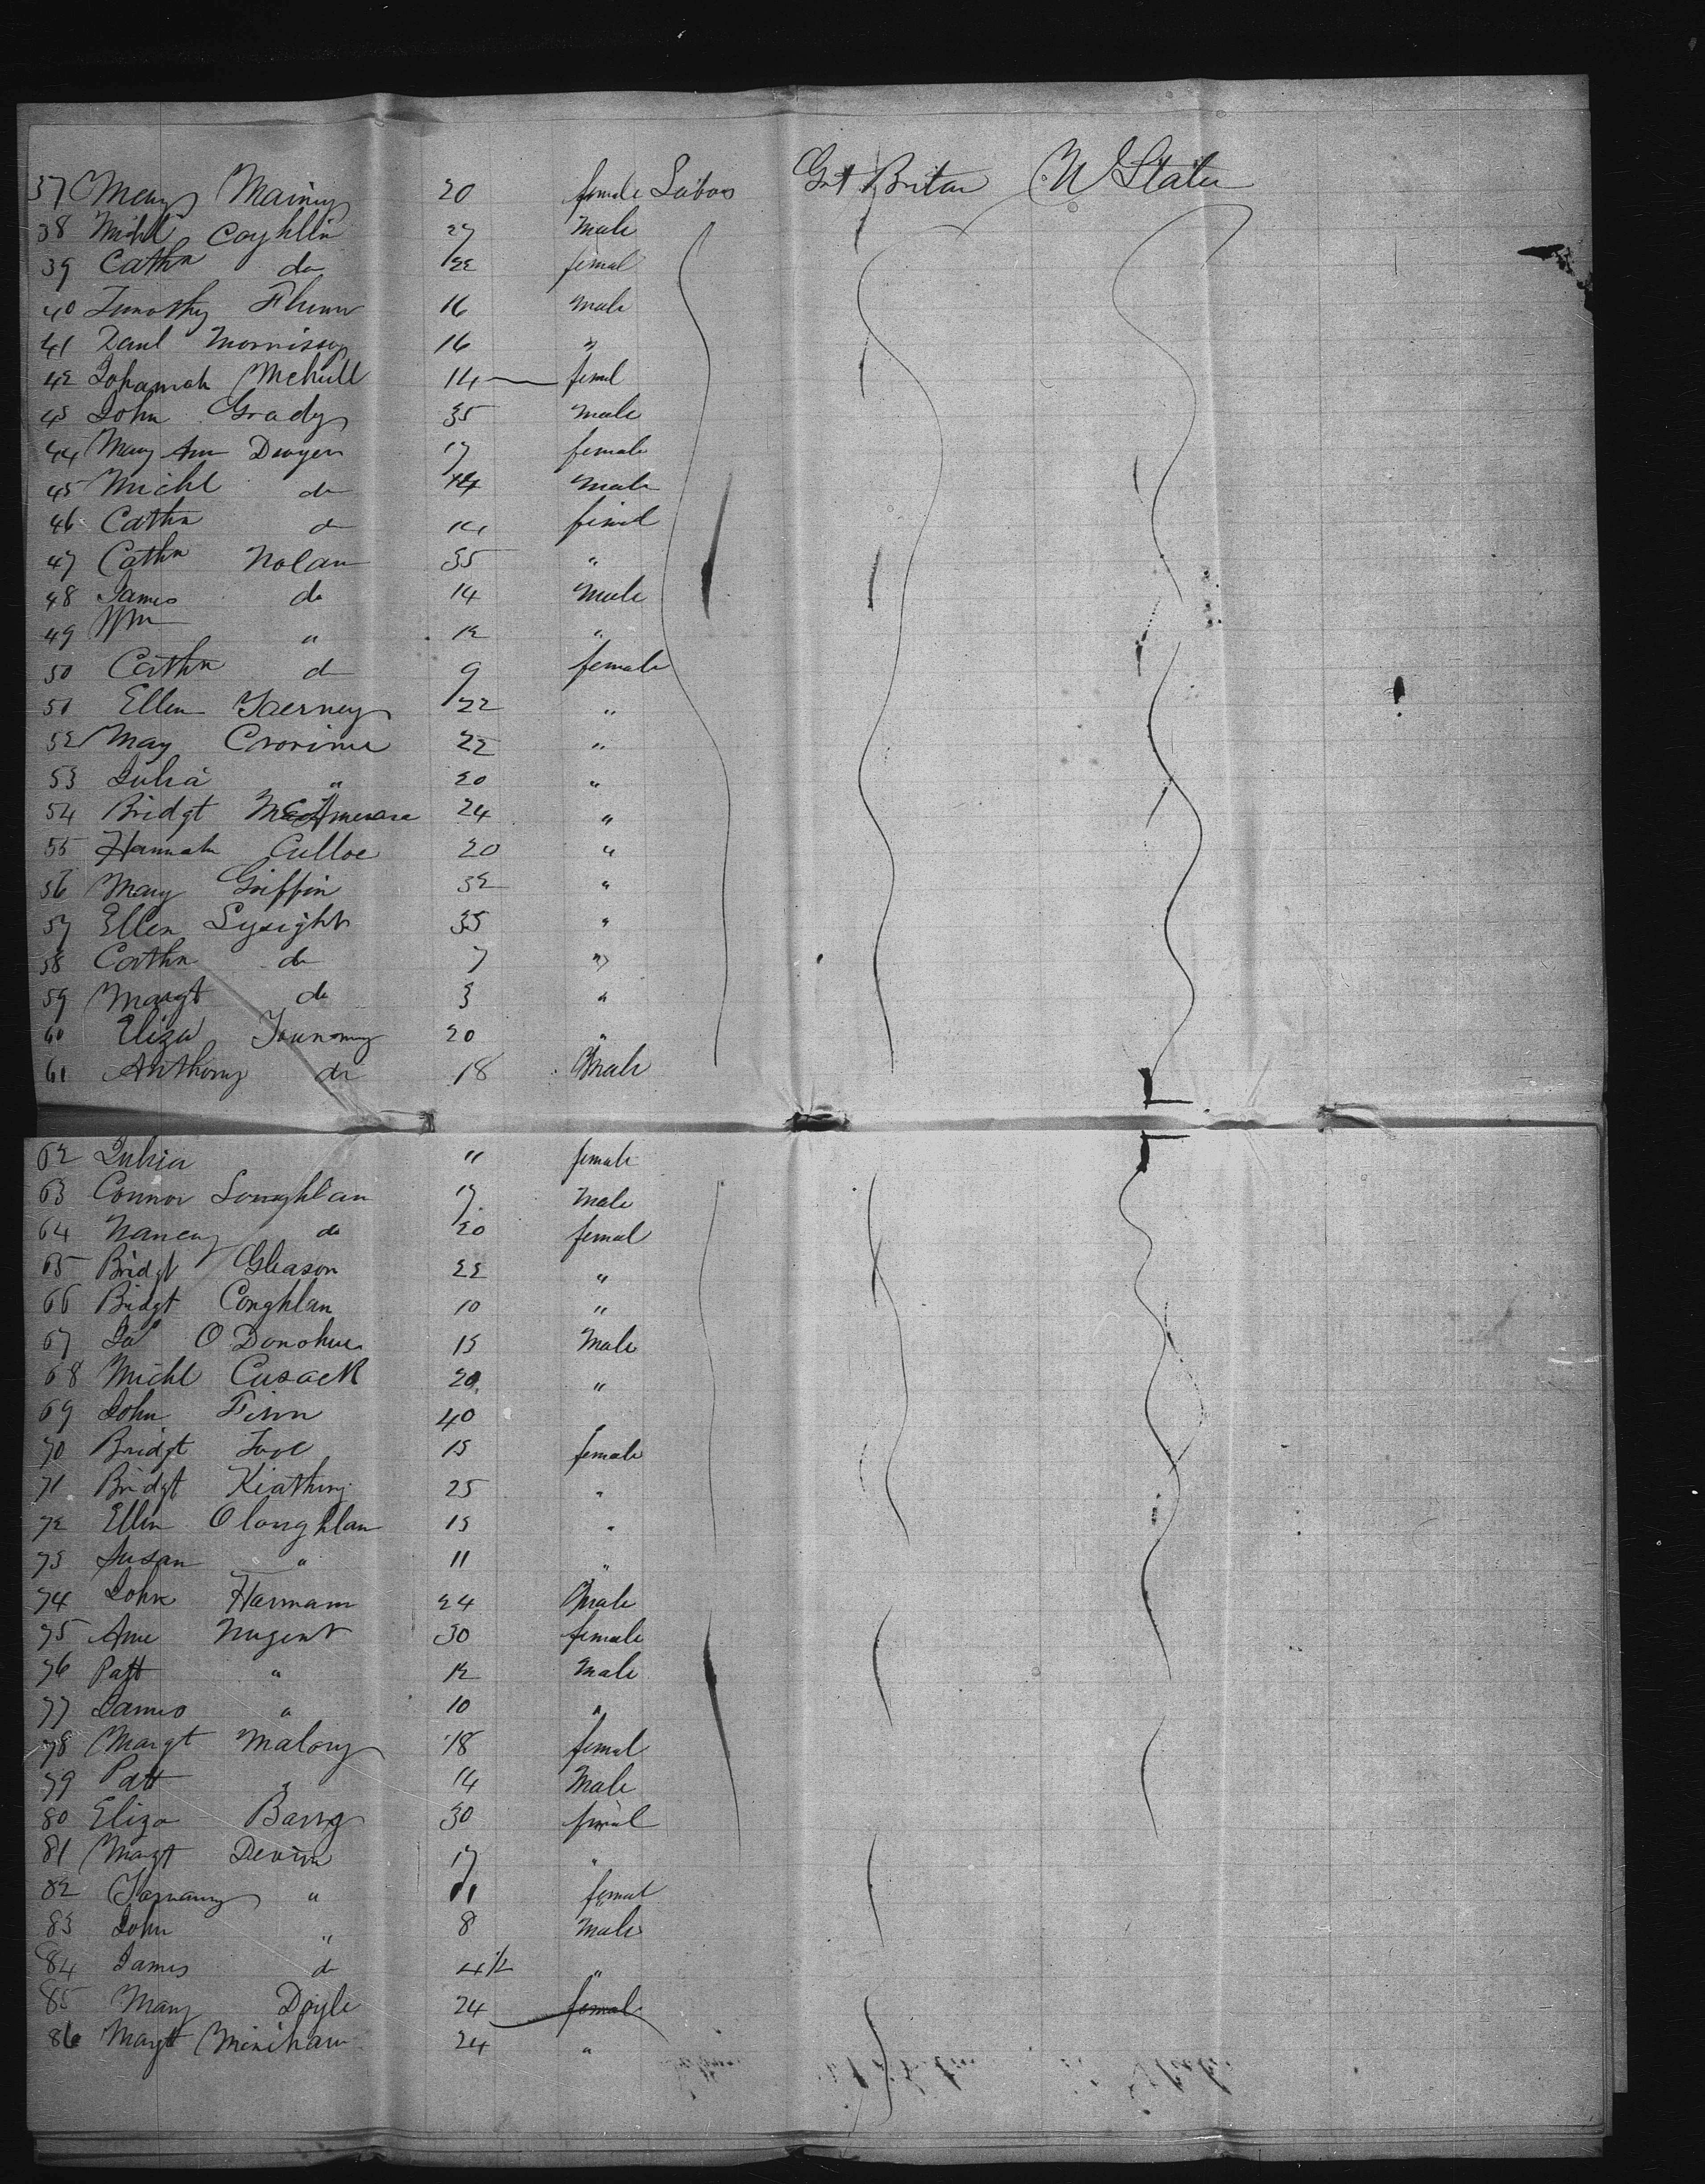 37 Mary 20 female Labor Gt Britan U States
38 Michl Coghlin 27 Male
39 Cathn do 22 femal
40 Timothy 16 male
41 Danl Morrissey 16 "
42 Johannah 14 — femal
43 John Grady 35 male
44 Mary Ann Dwyer 17 female
45 Michl do 14 male
46 Cathn do 14 femal
47 Cathn Nolan 35 "
48 James do 14 male
49 Wm " 12 "
50 Cathn do 9 female
51 Ellen Taerney 22 "
52 May 22 "
53 Julia " 20 "
54 Bridgt 24 "
55 Hannah Culloe 20 "
56 Mary Griffin 32 "
57 Ellen Lysight 35 "
58 Cathn do 7 "
59 Margt do 3 "
60 Eliza 20 "
61 Anthony do 18 Male
62 Julia " female
63 Connor Loughlan 17 Male
64 Nancy do 20 femal
65 Bridgt Gleason 22 "
66 Bridgt Coughlan 10 "
67 O Donohue 15 Male
68 Michl Cusack 20 "
69 John Finn 40
70 Bridgt 15 female
71 Bridgt Kiathing 25 "
72 Ellen Oloughlan 15 "
73 Susan " 11 "
74 John Hannam 24 Male
75 Ann Nugent 30 female
76 Patt " 12 Male
77 James " 10 "
78 Margt Malony 18 femal
79 Patt " 14 Male
80 Eliza Barry 30 femal
81 Margt Devine 17 "
82 " 11 femal
83 John " 8 Male
84 James do 4½ "
85 Mary Doyle 24 femal
86 Margt Minihan 24 "